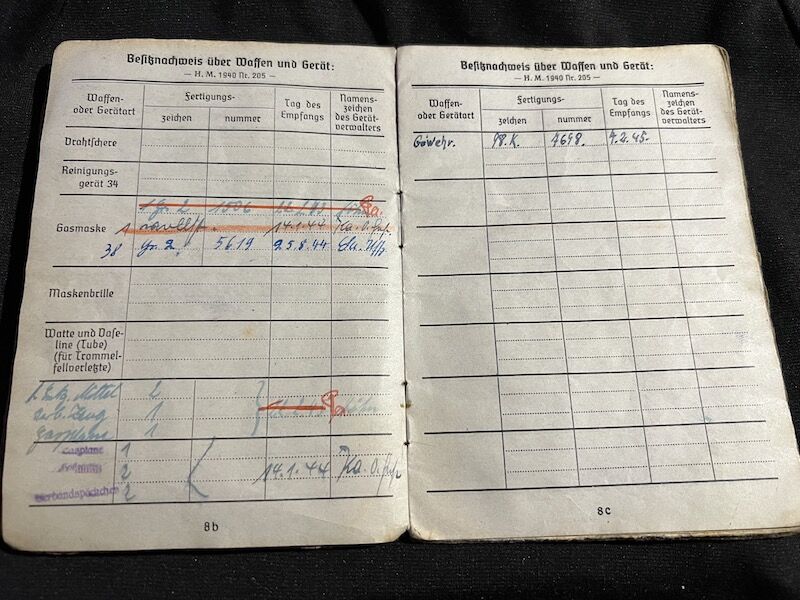 Besitznachweis über Waffen und Gerät:
— H. M. 1940 Nr. 205 —
Waffen-
oder Gerätart
Fertigungs-
zeichen
nummer
Tag des
Empfangs
Namens-
zeichen
des Gerät-
verwalters
Drahtschere
Reinigungs-
gerät 34
1 Gr. 2
Gasmaske 1 14.1.44
38 Gr. 2 5619 25.8.44
Maskenbrille
Watte und Vase-
line (Tube)
(für Trommel-
fellverletzte)
2
1
Gasplane 1
Gasplane 1
2 14.1.44
Verbandspäckchen 2
8b
Besitznachweis über Waffen und Gerät:
— H. M. 1940 Nr. 205 —
Waffen-
oder Gerätart
Fertigungs-
zeichen
nummer
Tag des
Empfangs
Namens-
zeichen
des Gerät-
verwalters
Gewehr. 98.K. 4698. 9.2.45.
8c